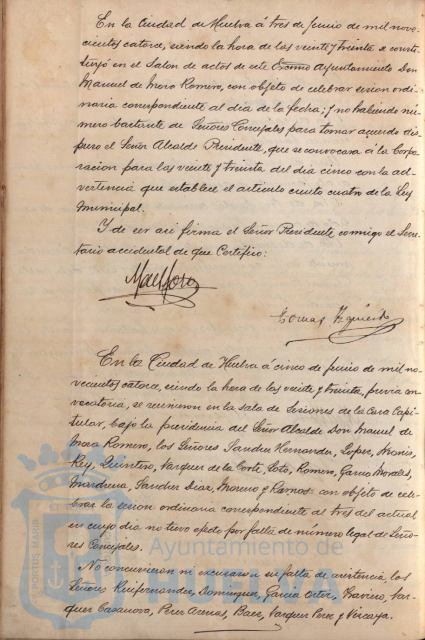 En la Ciudad de Huelva á tres de Junio de mil nove-
cientos catorce, siendo la hora de las veinte y treinta se consti-
tuyó en el Salon de actos de este Excmo Ayuntamiento Don
Manuel de Mora Romero, con objeto de celebrar sesion ordi-
naria correspondiente al dia de la fecha; y no habiendo nú-
mero bastante de Señores Concejales para tomar acuerdo dis-
puso el Señor Alcalde Presidente, que se convocara á la Corpo-
racion para las veinte y treinta del dia cinco con la ad-
vertencia que establece el articulo ciento cuatro de la Ley
Municipal.
Y de ser asi firma el Señor Presidente conmigo el Secre-
tario accidental de que Certifico:
En la Ciudad de Huelva á cinco de Junio de mil no-
vecientos catorce, siendo la hora de las veinte y treinta, previa con-
vocatoria, se reunieron en la sala de Sesiones de la Casa Capi-
tular, bajo la presidencia del Señor Alcalde Don Manuel de
Mora Romero, los Señores Sanchez Hernandez, Lopez,
Rey, Quintero, Vazquez de la Corte, Soto, Romero, Garcia Morales,
Sanchez Diaz, Moreno y Ramos con objeto de cele-
brar la sesion ordinaria correspondiente al tres del actual
en cuyo dia no tuvo efecto por falta de número legal de Seño-
res Concejales.
No concurrieron ni excusaron su falta de asistencia, los
Señores Ruifernandez, Dominguez, Garcia Ortiz, Vaz-
quez Casanova, Perez Arenas, Baez, Vazquez Perez y Vizcaya.
Ayuntamiento de
HUELVA
PORTUS MARIS